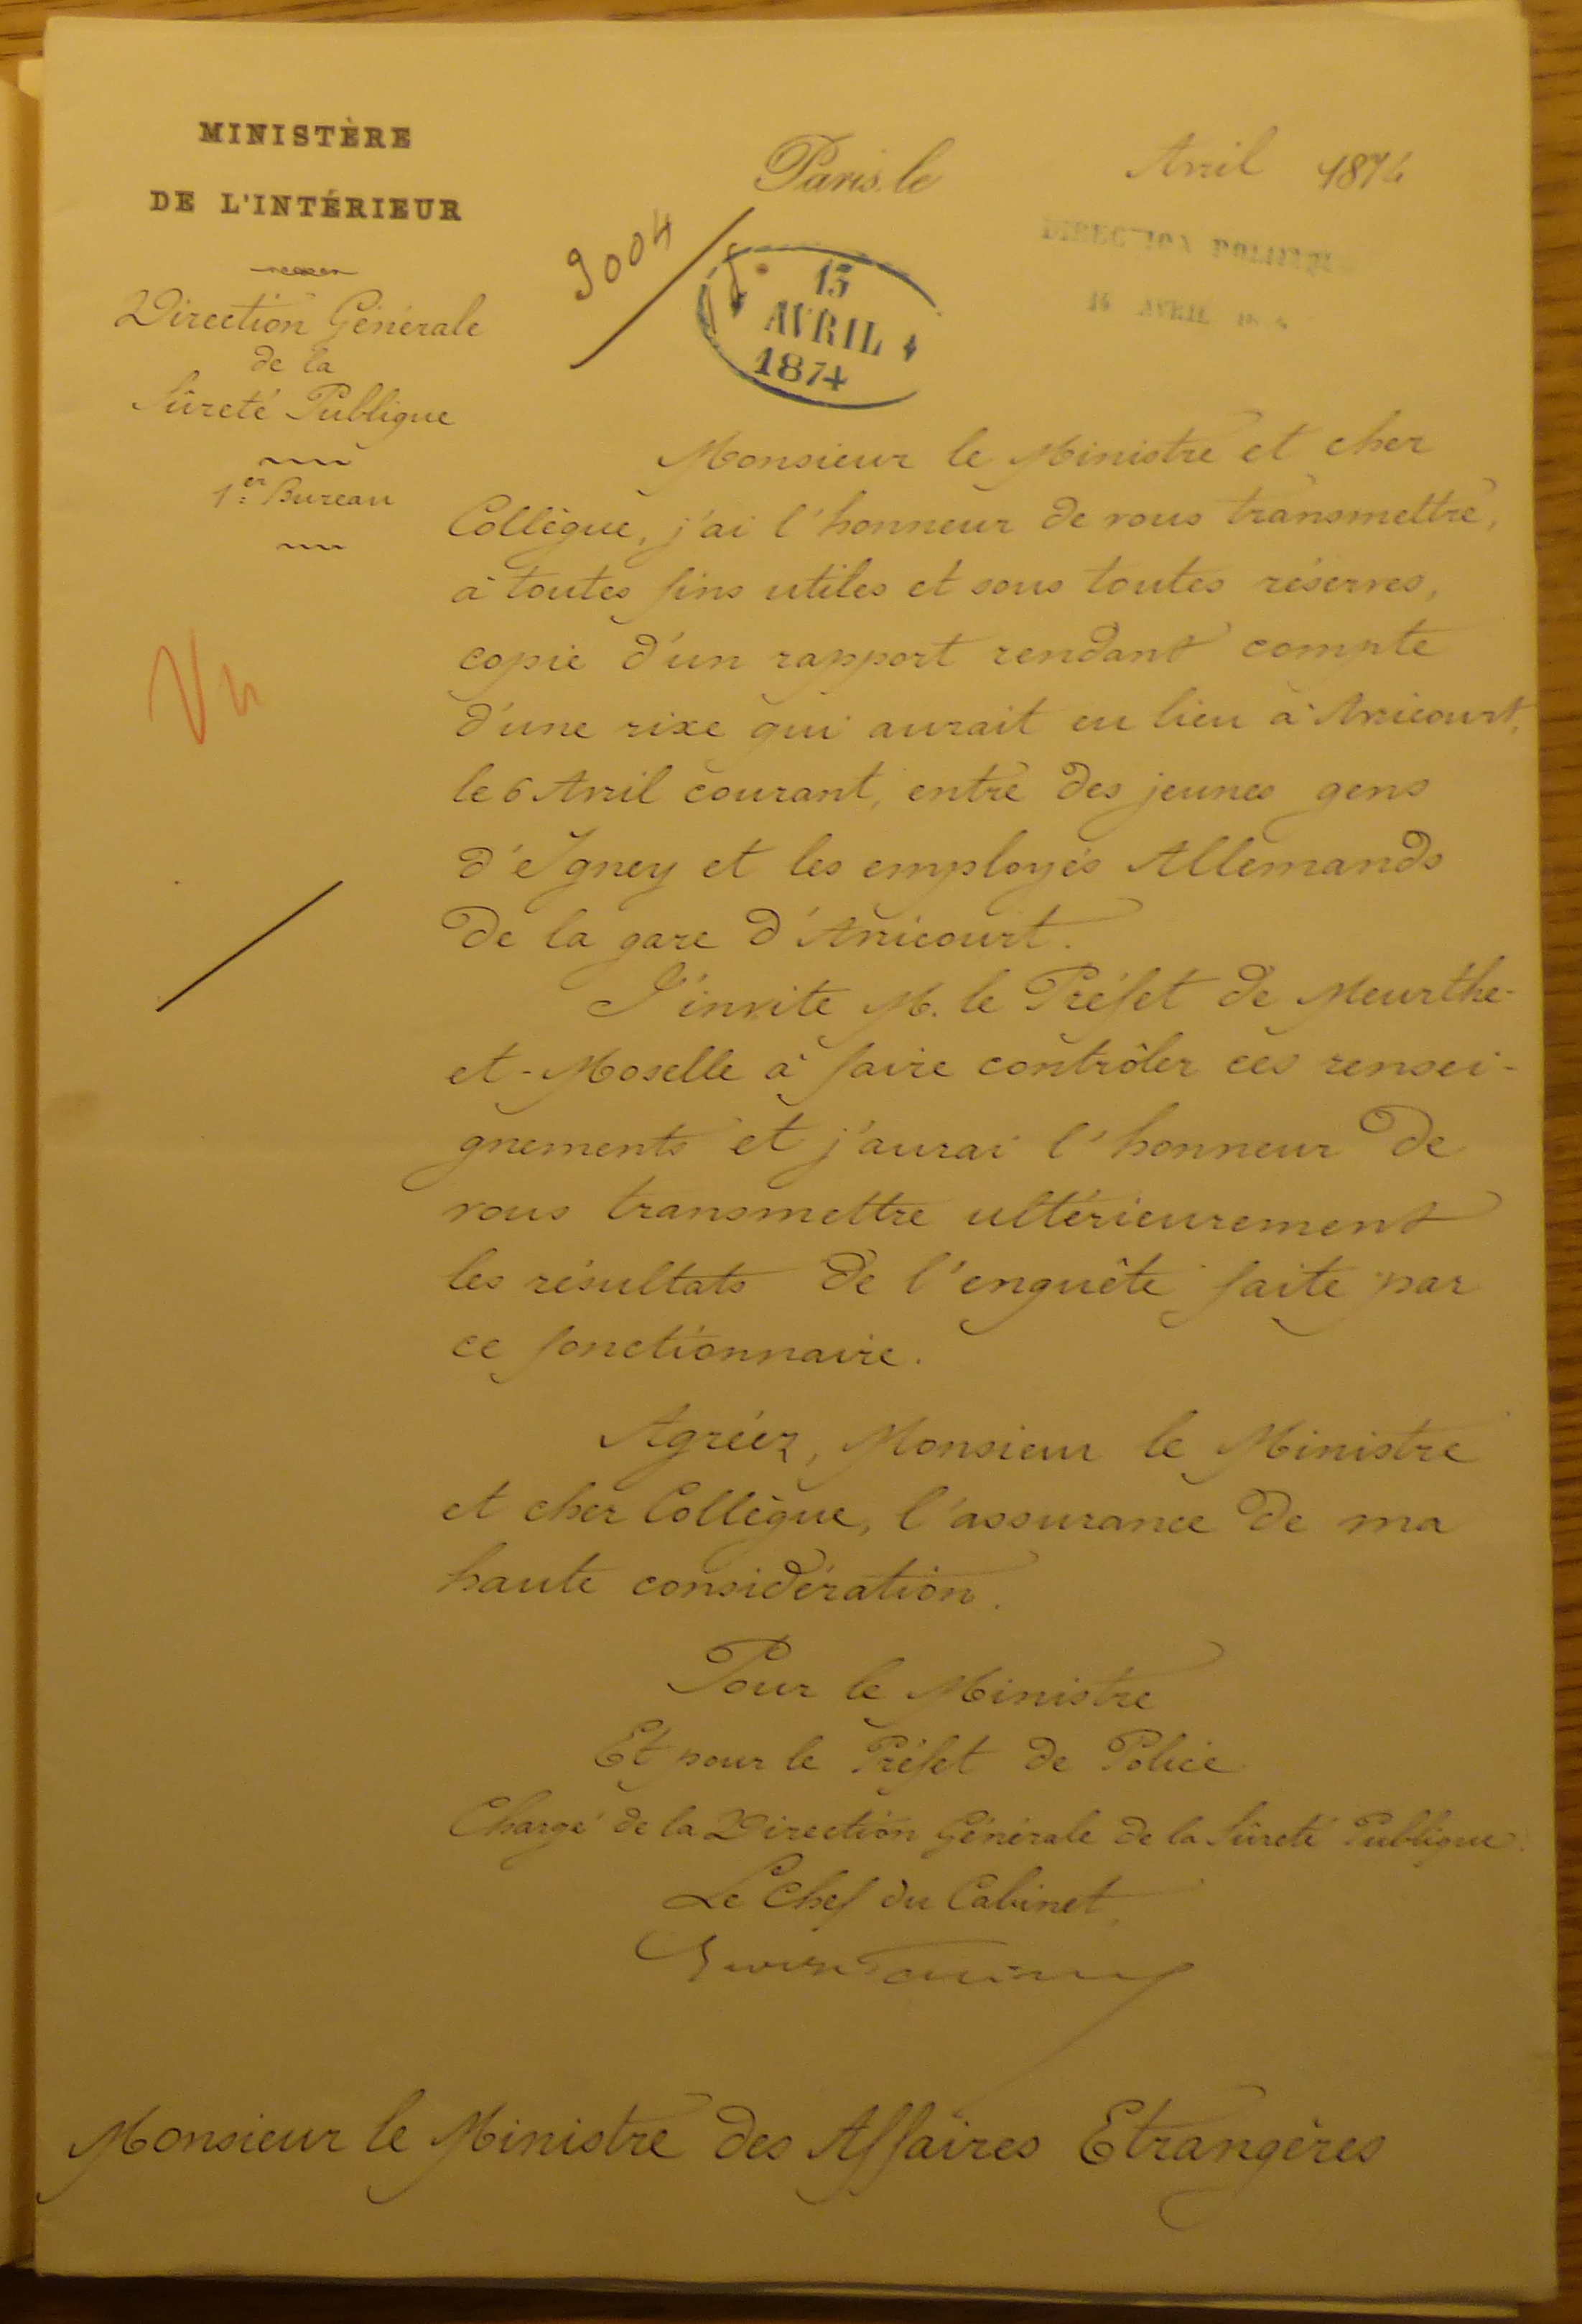 MINISTÈRE
DE L'INTÉRIEUR
Direction Générale
de la
Sûreté Publique
1er Bureau
Paris, le Avril 1874
9004
13
AVRIL
1874
DIRECTION POLITIQUE
14 AVRIL
Vu
Monsieur le Ministre et cher
Collègue, j'ai l'honneur de vous transmettre,
à toutes fins utiles et sous toutes réserves,
copie d'un rapport rendant compte
d'une rixe qui aurait eu lieu à Avricourt,
le 6 Avril courant, entre des jeunes gens
d'Igney et les employés Allemands
de la gare d'Avricourt.
J'invite M. le Préfet de Meurthe-
et-Moselle à faire contrôler ces rensei-
gnements et j'aurai l'honneur de
vous transmettre ultérieurement
les résultats de l'enquête faite par
ce fonctionnaire.
Agréez, Monsieur le Ministre
et cher Collègue, l'assurance de ma
haute considération.
Pour le Ministre
Et pour le Préfet de Police
Chargé de la Direction Générale de la Sûreté Publique
Le Chef du Cabinet,
Monsieur le Ministre des Affaires Etrangères